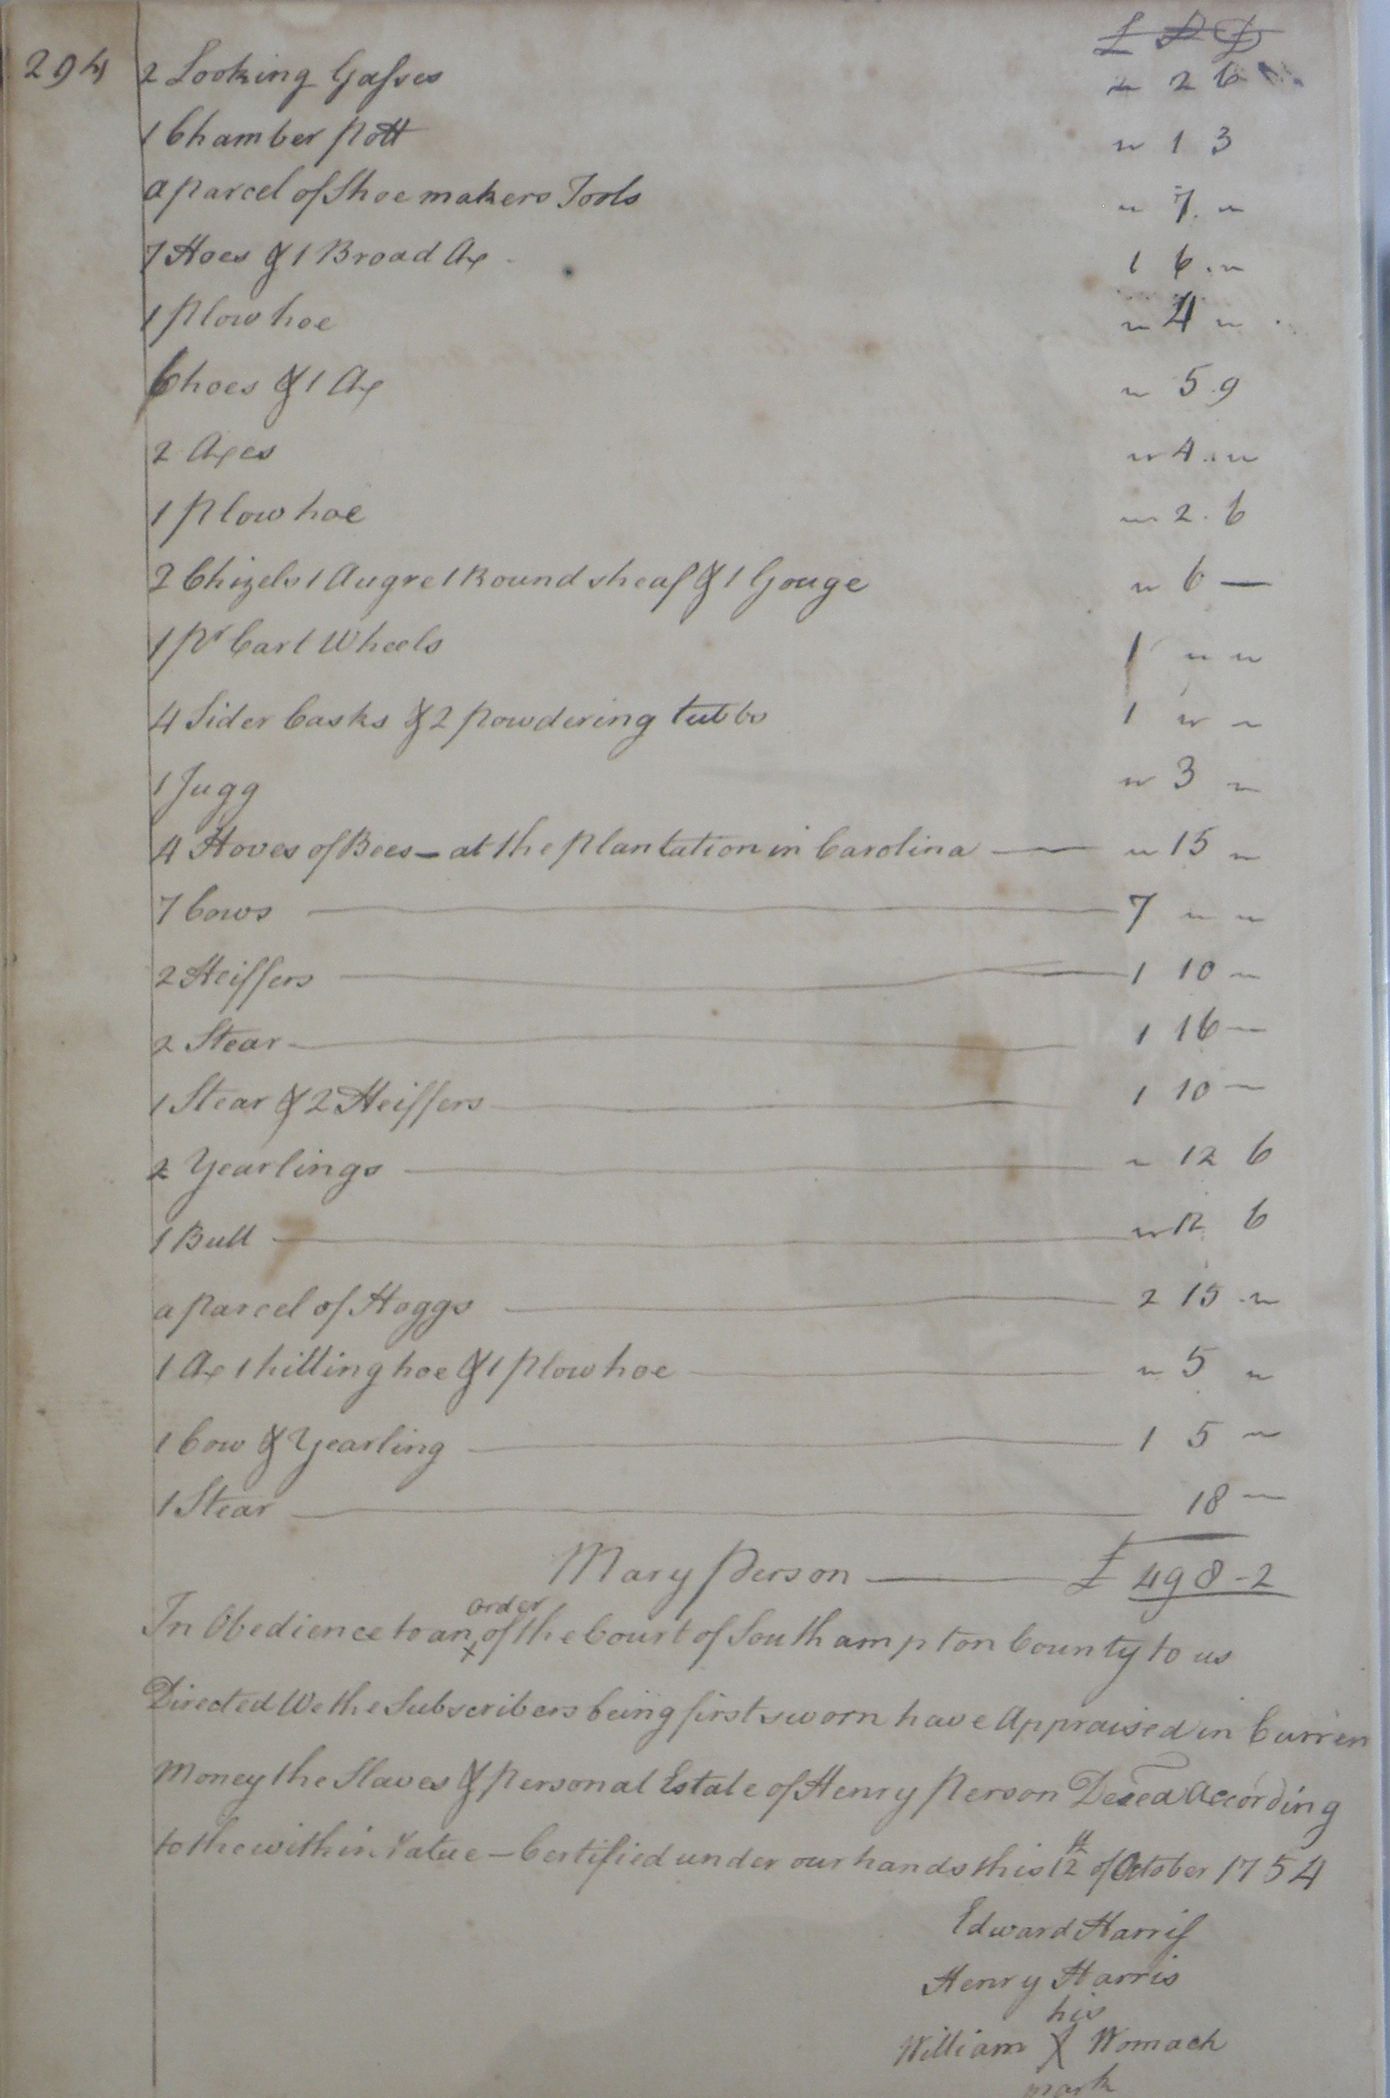 £ S D
294 2 Looking Gasses " 2 6
1 Chamber Pott " 1 3
a parcel of Shoemakers Tools " 7 "
7 Hoes & 1 Broad Ax 1 6 "
1 Plow hoe " 4 "
6 hoes & 1 Ax " 5 9
2 Axes " 4 "
1 Plow hoe " 2 6
2 Chizels 1 Augre 1 Round sheaf & 1 Gouge " 6 —
1 Pr Cart Wheels 1 " "
4 Sider Casks & 2 Powdering tubbs 1 " "
1 Jugg " 3 "
4 Hoves of Bees — at the Plantation in Carolina — " 15 "
7 Cows — 7 " "
2 Heiffers — 1 10 "
2 Stear — 1 16 —
1 Stear & 2 Heiffers — 1 10 —
2 Yearlings — " 12 6
1 Bull — " 12 6
a Parcel of Hoggs — 2 15 "
1 Ax 1 hilling hoe & 1 Plow hoe — " 5 "
1 Cow & Yearling — 1 5 "
1 Stear — 18 —
Mary Person — £ 498-2
order
In Obedience to an x of the Court of Southampton County to us
Directed We the Subscribers being first sworn have Appraised in Curren
Money the Slaves & Personal Estate of Henry Person Deced According
to the within Value — Certified under our hands this 12th of October 1754
Edward Harris
Henry Harris
his
William X Womack
mark